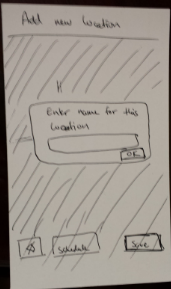 Add new location
H
Enter name for this
location
OK
Schedule
Save